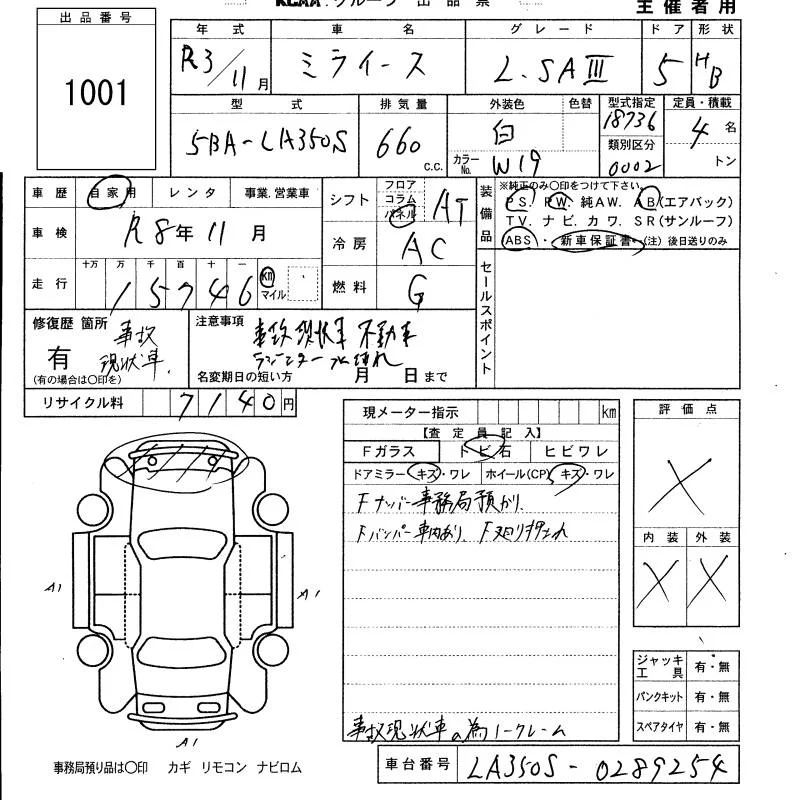 KCAA.グループ 出品票
主催者用
出品番号
1001
年式 車名 グレード ドア 形状
R3/11月 ミライース L.SAⅢ 5 HB
型式 排気量 外装色 色替 型式指定 定員・積載
5BA-LA350S 660 c.c. 白 カラーNo. W19 18736 類別区分 0002 4名 トン
車歴 自家用 レンタ 事業.営業車
車検 R8年11月
走行 十万 万 千 百 十 一
15746 km マイル
シフト フロア コラム パネル AT
冷房 AC
燃料 G
装備品 ※純正のみ○印をつけて下さい。
PS. PW. 純AW. AB(エアバック)
TV. ナビ. カワ. SR(サンルーフ)
ABS・新車保証書・(注)後日送りのみ
セールスポイント
修復歴 箇所 事故
有 現状車.
(有の場合は○印を)
注意事項 事故現状車 不動車
ラジエター水もれ
名変期日の短い方 月 日まで
リサイクル料 7140円
現メーター指示 km
【査定員記入】
Fガラス トビ石 ヒビワレ
ドアミラー キズ・ワレ ホイール(CP) キズ・ワレ
Fナンバー事務局預かり.
Fバンパー車内あり. F廻りワレ
事故現状車の為ノークレーム
評価点
X
内装 外装
X X
A1 A1
A1
ジャッキ工具 有・無
パンクキット 有・無
スペアタイヤ 有・無
事務局預り品は○印 カギ リモコン ナビロム
車台番号 LA350S-0289254